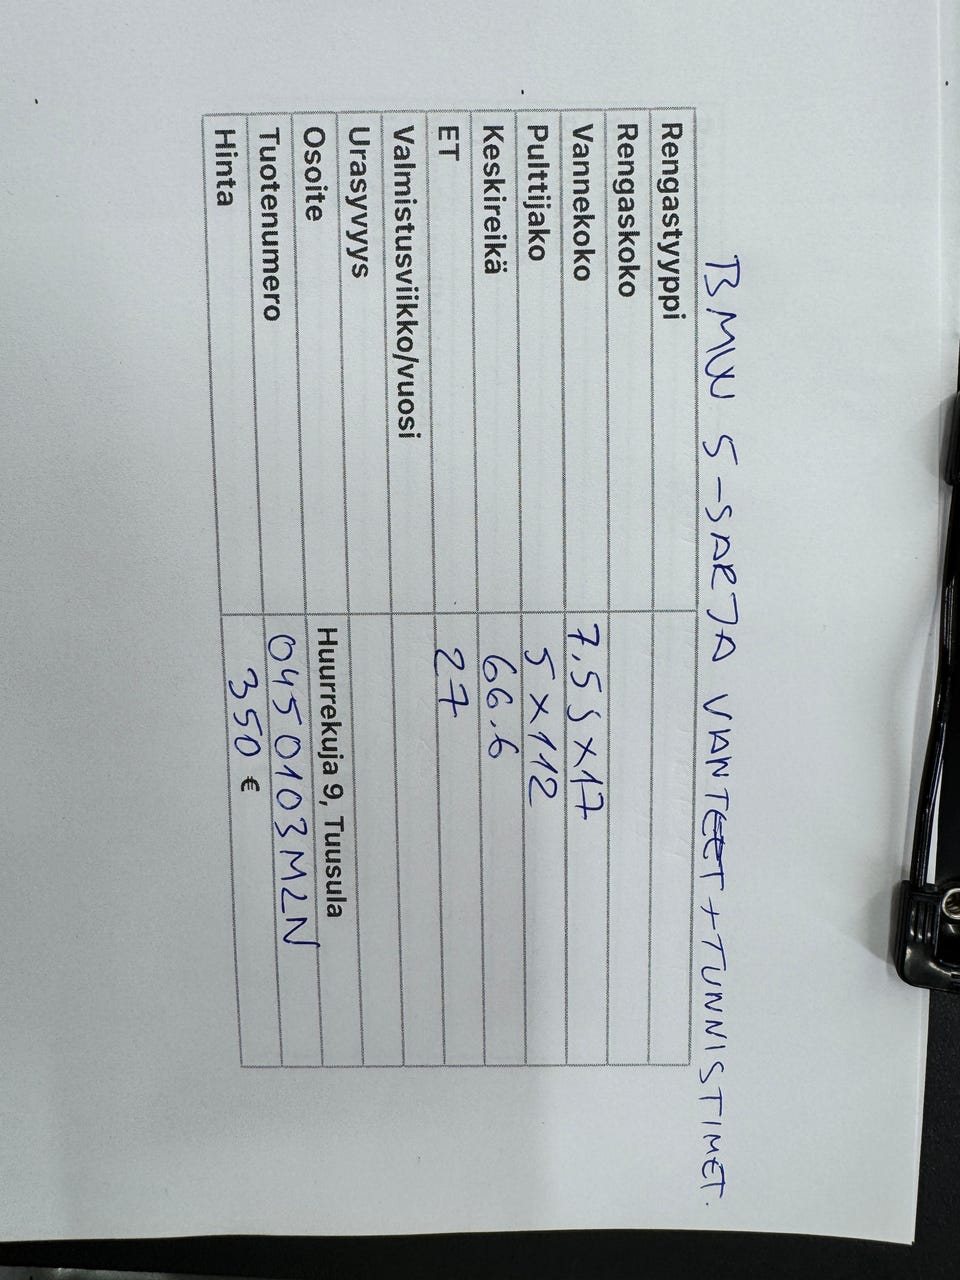 BMW 5-SARJA VANTEET + TUNNISTIMET.
Rengastyyppi
Rengaskoko
Vannekoko 7,5J x17
Pulttijako 5 x 112
Keskireikä 66.6
ET 27
Valmistusviikko/vuosi
Urasyvyys
Osoite Huurrekuja 9, Tuusula
Tuotenumero 0450103MLN
Hinta 350 €